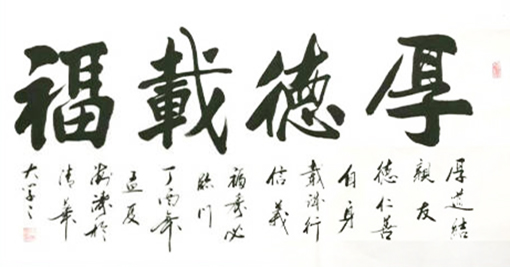 厚德載福
厚道結
親友
德仁善
自身
載誠行
信義
福壽必
臨门
丁酉年
孟夏
於
清華
大学